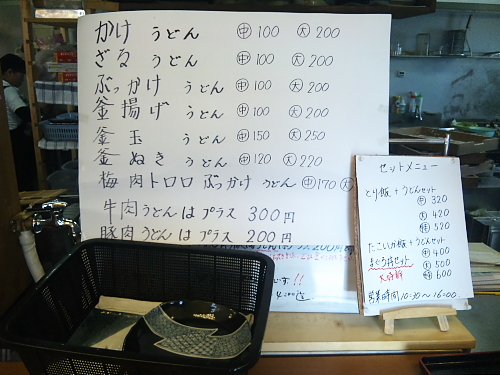 かけ うどん ㊥100 ㊅200
ざる うどん ㊥100 ㊅200
ぶっかけ うどん ㊥100 ㊅200
釜揚げ うどん ㊥100 ㊅200
釜玉 うどん ㊥150 ㊅250
釜ぬき うどん ㊥120 ㊅220
梅肉トロロ ぶっかけ うどん ㊥170 ㊅
牛肉うどんは プラス 300円
豚肉うどんは プラス 200円
です!!
セットメニュー
とり飯+うどんセット
㊥ 320
㊅ 420
㊕ 520
たこいか飯+うどんセット
㊥ 400
㊅ 500
㊕ 600
大好評
営業時間 10:30〜16:00